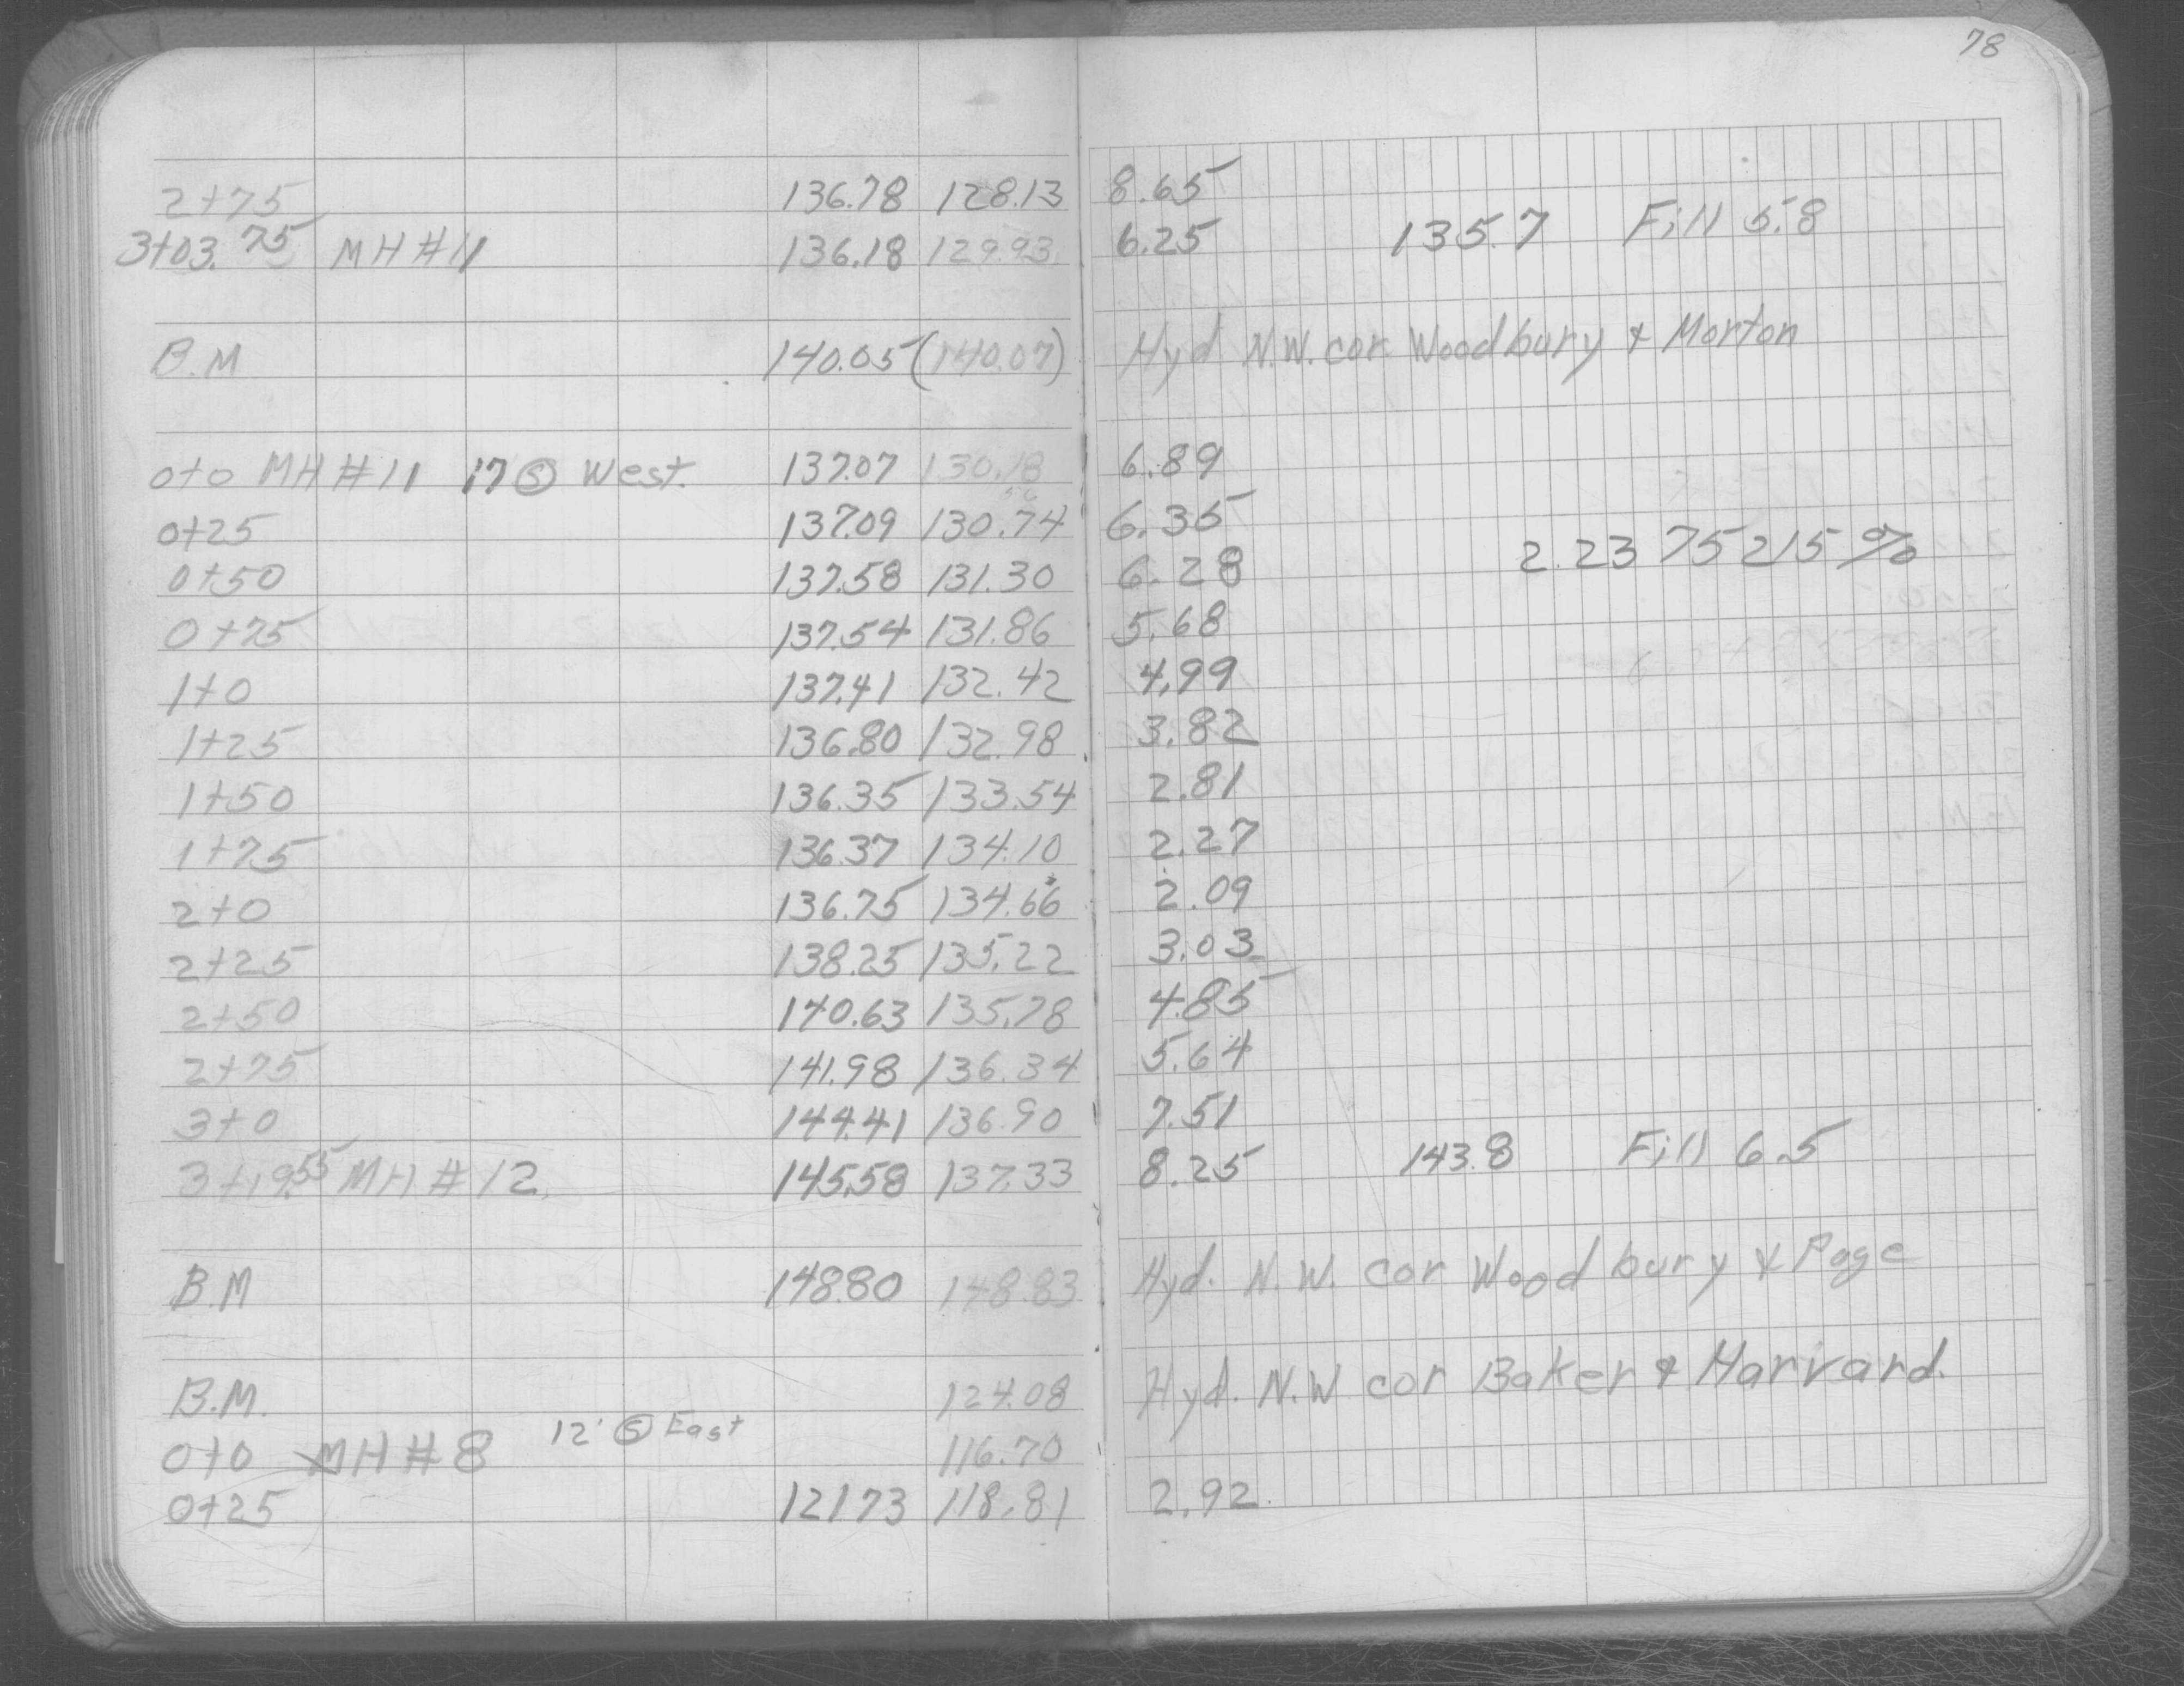 78
2+75 136.78 128.13 8.65
3+03.75 MH #11 136.18 129.93 6.25 135.7 Fill 5.8
B.M 140.05 (140.07) Hyd N.W. cor. Woodbury & Morton
0+0 MH #11 17 Ⓢ West. 137.07 130.18 6.89
56
0+25 137.09 130.74 6.35
0+50 137.58 131.30 6.28 2.2375215%
0+75 137.54 131.86 5.68
1+0 137.41 132.42 4.99
1+25 136.80 132.98 3.82
1+50 136.35 133.54 2.81
1+75 136.37 134.10 2.27
2+0 136.75 134.66 2.09
2+25 138.25 135.22 3.03
2+50 140.63 135.78 4.85
2+75 141.98 136.34 5.64
3+0 144.41 136.90 7.51
3+19.55 MH #12 145.58 137.33 8.25 143.8 Fill 6.5
B.M 148.80 148.83 Hyd. N.W. cor Woodbury & Page
B.M. 124.08 Hyd. N.W cor Baker & Harvard.
0+0 MH #8 12' Ⓢ East 116.70
0+25 121.73 118.81 2.92